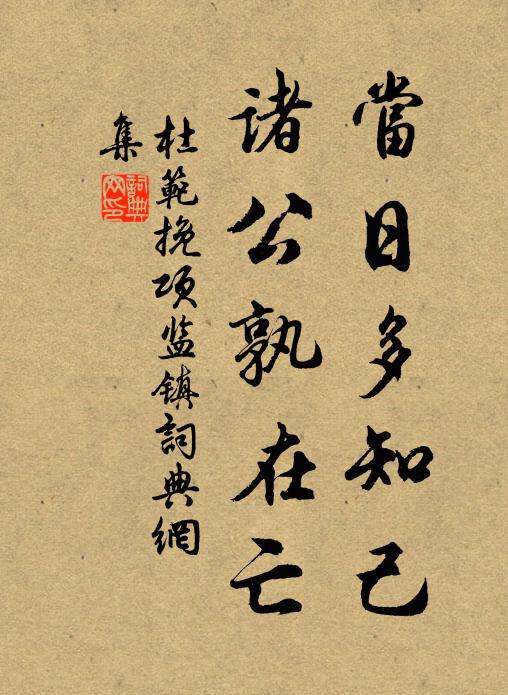 當日多知己
諸公孰在亡
杜範挽项监镇詞典網
集
詞典
网印